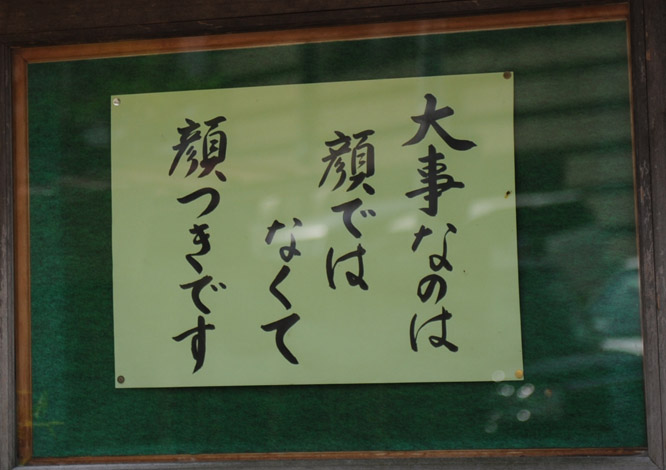 大事なのは
顔では
なくて
顔つきです